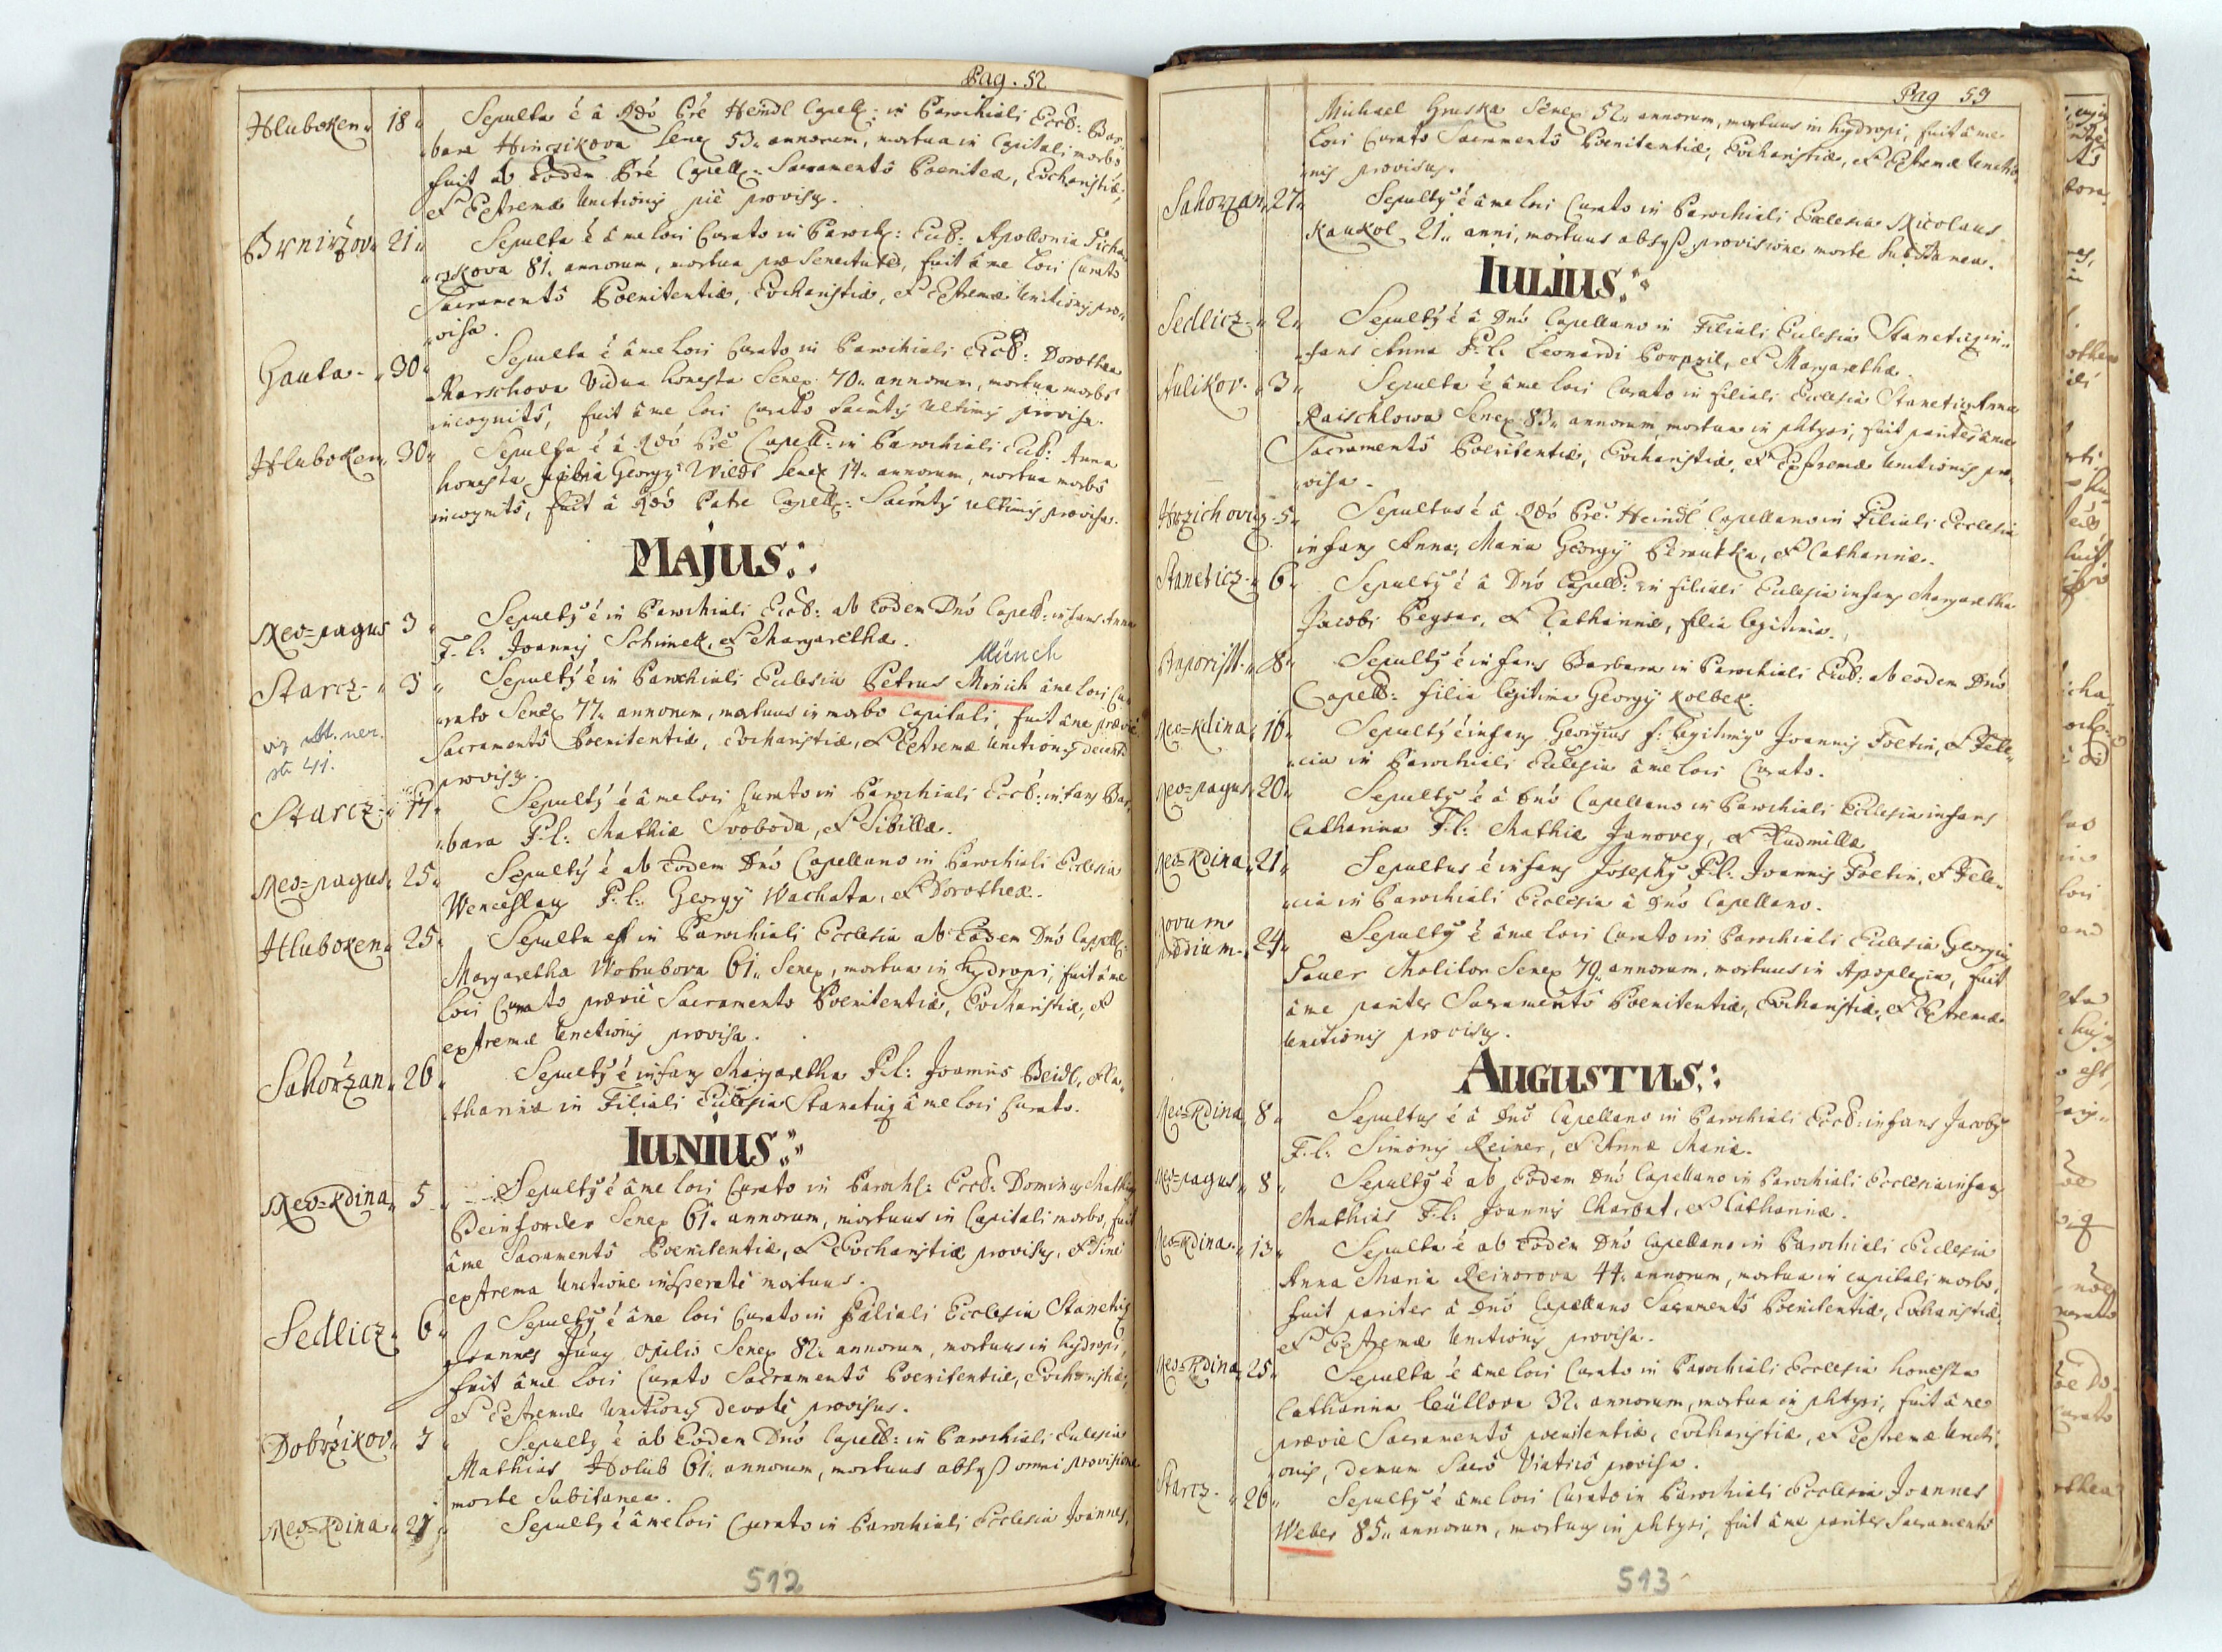 Pag. 52
Hluboken 18 Sepulta é â Rdó Pré Heindl Capell: in Parochiali Eccl: Bar-
bara Hinczikova Senex 53. annorum, mortua in Capitali morbô
fuit ab Eodem Pré Capell: Sacramentô Poenitae, Eucharistiae,
et Extremae Unctionis piè provisa.
21 Sepulta é â me loci Curato in Paroch: Eccl: Apollonia
81. annorum, mortua prae Senectute, fuit â me loci Curato
Sacramentô Poenitentiae, Eucharistiae, et Extremae Unctionis pro-
visa.
Gauta 30 Sepulta é â me loci Curato in Parochiali Eccl: Dorothea
Marschova Vidua honesta Senex 70. annorum, mortua morbô
incognitô, fuit â me loci Curato Sacrmtis Ultimis provisa.
Hluboken 30 Sepulta é â Rdó Pré Capell: in Parochiali Eccl: Anna
honesta Georgÿ Wiedl Senex 17. annorum, mortua morbô
incognitô, fuit â Rdó Patre Capell: Sacrmtis ultimis provisa.
MAJUS:
Neo=pagus 3 Sepultÿ é in Parochiali Eccl: ab Eodem Dnó Capell: infans Anna
F. l: Joannis Schimek, et Margarethae.
Münch
Starcz 5 Sepultÿ é in Parochiali Eclesia Petrus Minich â me loci Cu-
rato Senex 77. annorum, mortuus in morbo Capitali, fuit â me praevie
Sacramentô Poenitentiae, Eucharistiae, et Extremae Unctionis
provisÿ.
viz
str 41.
Starcz 17 Sepultÿ é â me loci Curato in Parochiali Eccl: infans Bar-
bara F. l: Mathiae Svoboda, et Sibillae.
Neo=pagus 25 Sepultÿ é ab Eodem Dnó Capellano in Parochiali Ecclesia
Wenceslaus F. l: Georgÿ Wachata, et Dorotheae.
Hluboken 25 Sepulta est in Parochiali Ecclesia ab Eodem Dnó Capell:
Margaretha Wotrubova 61. Senex, mortua in hydropi, fuit â me
loci Curato praevie Sacramento Poenitentiae, Eucharistiae, et
extremae Unctionis provisa.
Sahorzan 26 Sepultÿ é infans Margaretha F. l: Joannis Beidl, et Ca-
tharinae in Filiali Ecclesia Stanetiz â me loci Curato.
IUNIUS:
Neo=Kdina 5 Sepultÿ é â me loci Curato in Parochl: Eccl: Dominus Mathias
Beinforder Senex 61. annorum, mortuus in Capitali morbo, fuit
â me Sacramentô Poenitentiae, et Eucharistiae provisus, et Sine
extrema Unctione insperatè mortuus.
Sedlicz 6 Sepultÿ é â me loci Curato in Filiali Ecclesia Stanetiz
Joannes Jung opilio Senex 82. annorum, mortuus in hydropi,
fuit â me loci Curato Sacramentô Poenitentiae, Eucharistiae,
et Extremae Unctionis devotè provisus.
Dobrzikov 7 Sepultÿ é ab Eodem Dnó Capell: in Parochiali Eclesia
Mathias Holub 61. annorum, mortuus absqß omni provisione
morte Subitanea.
Neo=Kdina 27 Sepultÿ é â me loci Curato in Parochiali Ecclesia Joannes,
512
Pag 53
Michael Hruska Senex 52. annorum, mortuus in hydropi, fuit â me
loci Curato Sacramentô Poenitentiae, Eucharistiae, et Extremae Unctio-
nis provisus.
Sahorzan 27 Sepultÿ é â me loci Curato in Parochiali Ecclesia Nicolaus
Kaukol 21. anni, mortuus absqß provisione morte Subitanea.
IULIUS:
Sedlicz 2 Sepultÿ é â Dnó Capellano in Filiali Eclesia Stanetiz in-
fans Anna F. l. Leonardi, et Margaretha.
Aulikov 3 Sepulta é â me loci Curato in filiali Ecclesia Stanetiz Anna
Raischlowa Senex 83. annorum, mortua in phtysi, fuit pariter â me
Sacramentô Poenitentiae, Eucharistiae, et Extremae Unctionis pro-
visa.
Hrzichoviz 5 Sepultus é â Rdó Pré Heindl Capellano in Filiali Ecclesia
infans Anna Maria Georgÿ, et Catharinae.
Staneticz 6 Sepultÿ é â Dnó Capell: in filiali Eclesia infans Margaretha
Jacobi Peysar, et Catharinae, filia legitima.
8 Sepultÿ é infans Barbara in Parochiali Eccl: ab eodem Dnó
Capell: filia legitima Georgÿ Kolbek.
Neo=Kdina 16 Sepultÿ é infans Georgius f: legitimÿ Joannis Foltin, et Feli-
cia in Parochiali Eclesia â me loci Curato.
Neo=pagus 20 Sepultÿ é â Dnó Capellano in Parochiali Ecclesia infans
Catharina F. l: Mathiae Janovez, et Ludmilla.
Neo=Kdina 21 Sepultus é infans Josephÿ F. l. Joannis Foltin, et Feli-
cia in Parochiali Ecclesia â Dnó Capellano.
Novum
praedium 24 Sepultÿ é â me loci Curato in Parochiali Eclesia Georgius
Molitor Senex 79. annorum, mortuus in Apoplexia, fuit
â me pariter Sacramentô Poenitentiae, Eucharistiae, et Extremae
Unctionis provisus.
AUGUSTUS:
Neo=Kdina 8 Sepultus é â Dnó Capellano in Parochiali Eccl: infans Jacobÿ
F. l: Simonis Reiner, et Annae Maria.
Neo=pagus 8 Sepultÿ é ab Eodem Dnó Capellano in Parochiali Ecclesia infans
Mathias F. l: Joannis Charvat, et Catharinae.
Neo=Kdina 13 Sepulta é ab Eodem Dnó Capellano in Parochiali Eclesia
Anna Maria Reinerova 44. annorum, mortua in capitali morbo,
fuit pariter â Dnó Capellano Sacramentô Poenitentiae, Eucharistiae,
et Extremae Unctionis provisa.
Neo=Kdina 25 Sepulta é â me loci Curato in Parochiali Ecclesia honesta
Catharina 32. annorum, mortua in phtysi, fuit â me
praevie Sacramentô poenitentiae, eucharistiae, et Extremae Uncti-
onis, demum Sacrô Viaticô provisa.
Starcz 26 Sepultÿ é â me loci Curato in Parochiali Ecclesia Joannes
Weber 85. annorum, mortuus in phtysi, fuit â me pariter Sacramentô
513